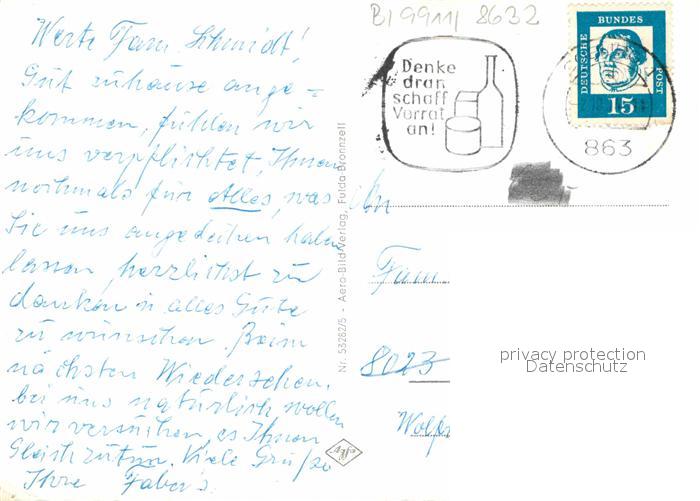 Werte Fam. Schmidt!
Gut zuhause ange=
kommen, fühlen wir
uns verpflichtet, Ihnen
nochmals für Alles, was
Sie uns angedeihen haben
lassen, herzlichst zu
danken u alles Gute
zu wünschen. Beim
nächsten Wiedersehen,
bei uns natürlich, wollen
wir versuchen, es Ihnen
Gleichzutun. Viele Grüße
Ihre Faber's
Nr. 53282/5 - Aero-Bild-Verlag, Fulda-Bronnzell
B1 9911/ 8632
Denke
dran
schaff
Vorrat
an!
DEUTSCHE
BUNDES
POST
15
863
An
Fam
8023
privacy protection
Datenschutz